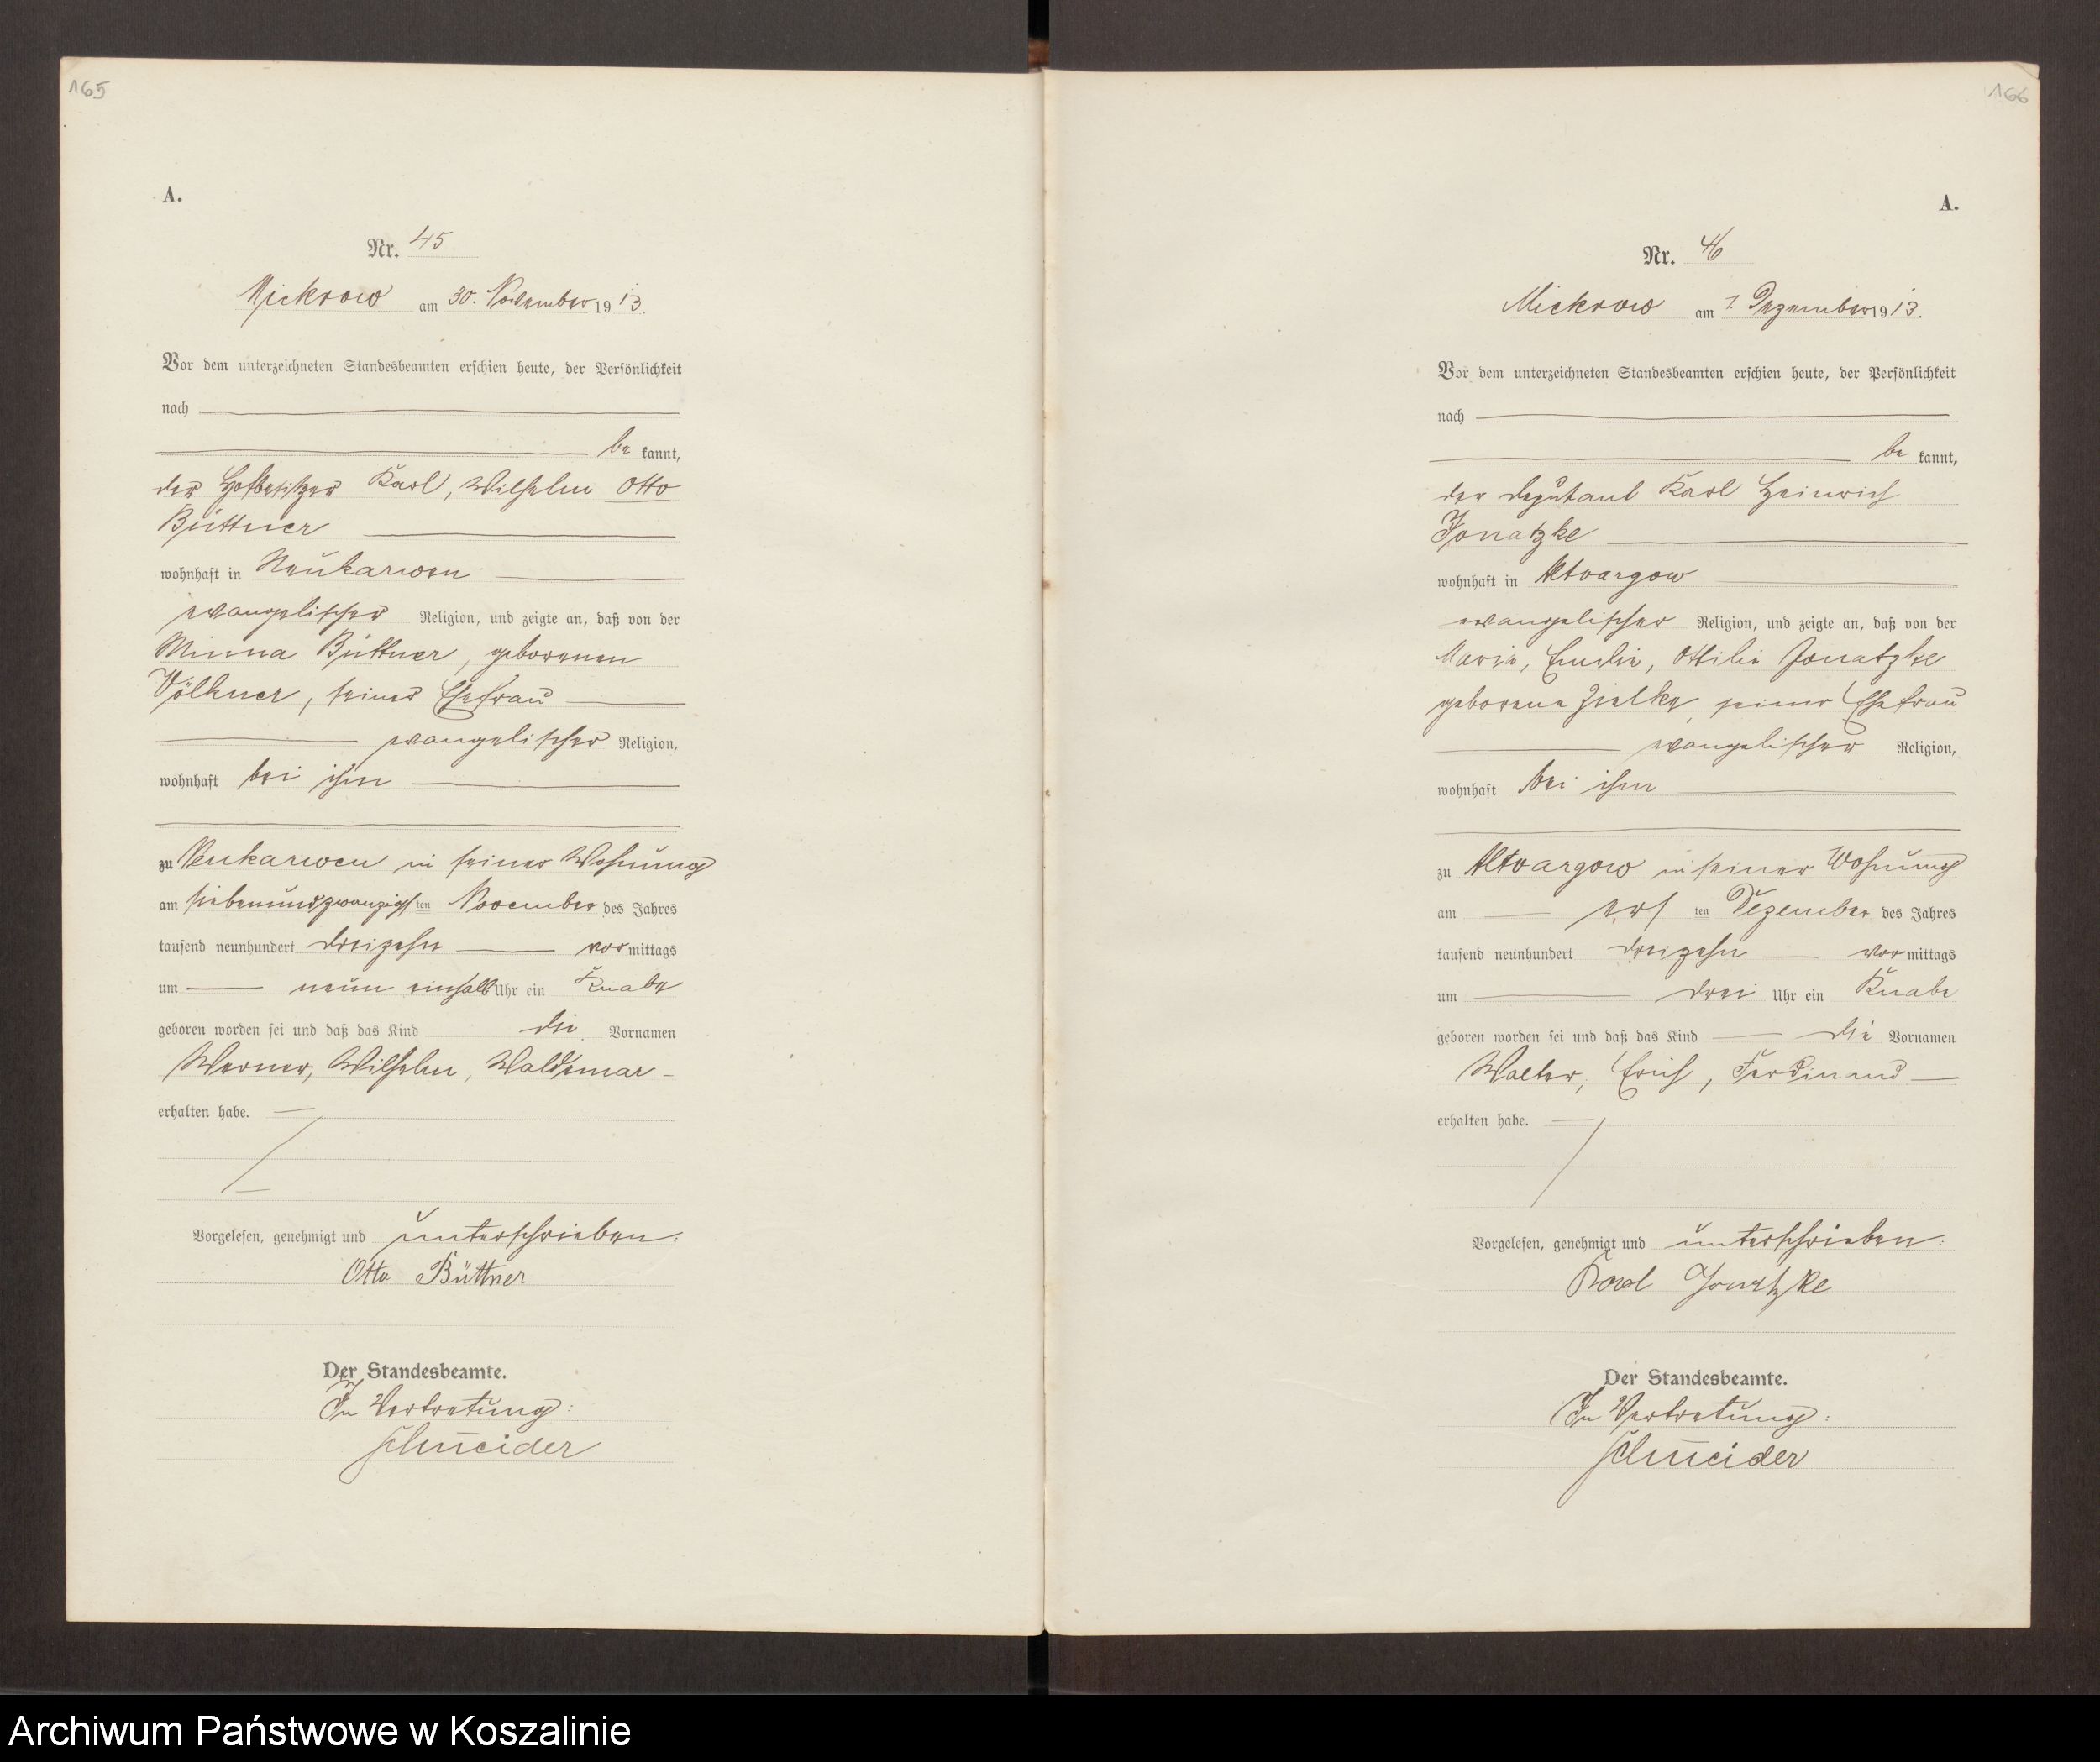 165
A.
Nr. 45
Mickrow am 30. November 1913.
Vor dem unterzeichneten Standesbeamten erschien heute, der Persönlichkeit
nach
be kannt,
der Hofbesitzer Karl, Wilhelm Otto
Büttner
wohnhaft in Neukarwen
evangelischer Religion, und zeigte an, daß von der
Minna Büttner, geborenen
Völkner, seiner Ehefrau
evangelischer Religion,
wohnhaft bei ihm
zu Neukarwen in seiner Wohnung
am siebenundzwanzigsten November des Jahres
tausend neunhundert dreizehn vormittags
um neun einhalb Uhr ein Knabe
geboren worden sei und daß das Kind die Vornamen
Werner, Wilhelm, Waldemar
erhalten habe.
Vorgelesen, genehmigt und unterschrieben:
Otto Büttner
Der Standesbeamte.
In Vertretung:
Schneider
166
A.
Nr. 46
Mickrow am 1. Dezember 1913.
Vor dem unterzeichneten Standesbeamten erschien heute, der Persönlichkeit
nach
be kannt,
der Deputant Karl Heinrich
Jonatzke
wohnhaft in Altvargow
evangelischer Religion, und zeigte an, daß von der
Maria, Emilie, Ottilie Jonatzke
geborene Zielke, seiner Ehefrau
evangelischer Religion,
wohnhaft bei ihm
zu Altvargow in seiner Wohnung
am ersten Dezember des Jahres
tausend neunhundert dreizehn vormittags
um drei Uhr ein Knabe
geboren worden sei und daß das Kind die Vornamen
Walter, Erich, Ferdinand
erhalten habe.
Vorgelesen, genehmigt und unterschrieben:
Karl Jonatzke
Der Standesbeamte.
In Vertretung:
Schneider
Archiwum Państwowe w Koszalinie